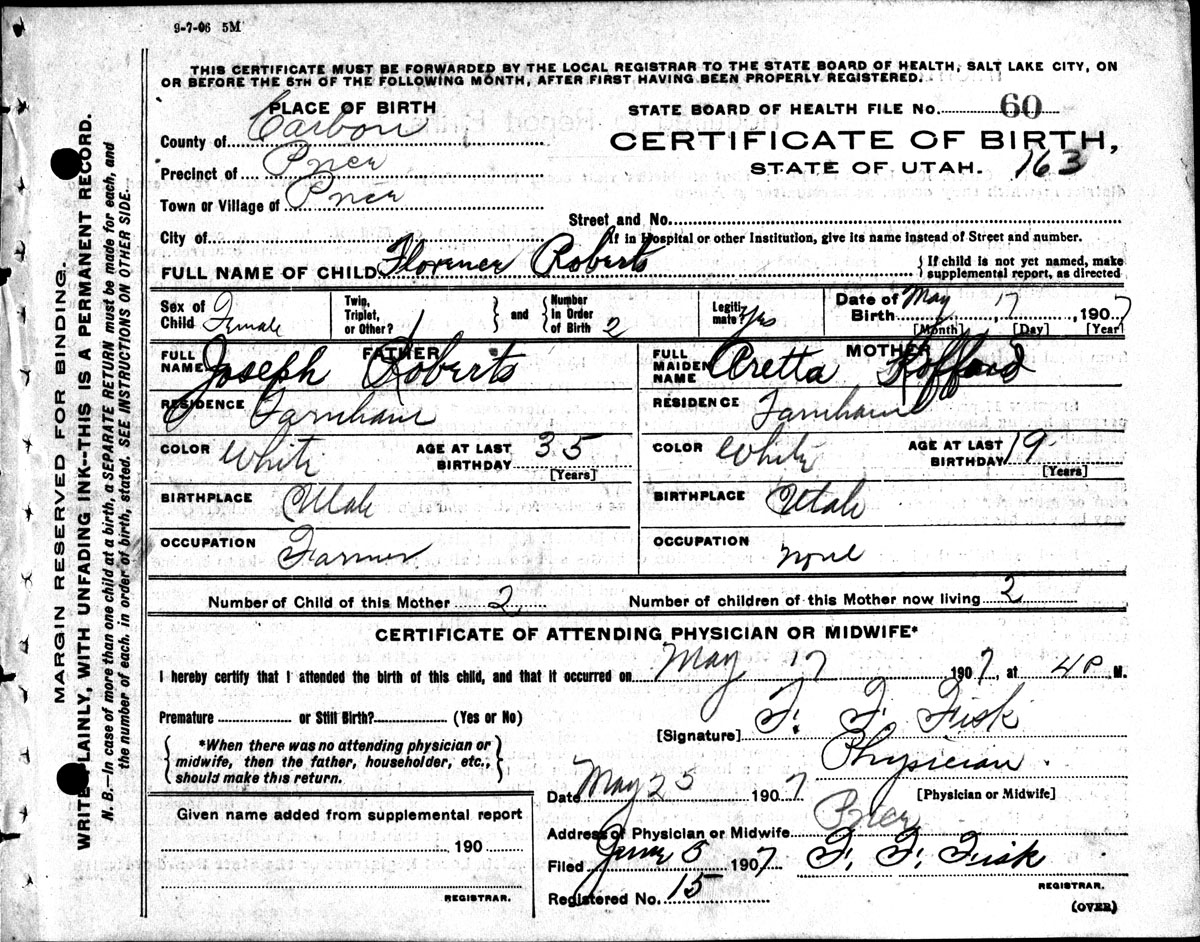 9-7-06 5M
THIS CERTIFICATE MUST BE FORWARDED BY THE LOCAL REGISTRAR TO THE STATE BOARD OF HEALTH, SALT LAKE CITY, ON
OR BEFORE THE 5TH OF THE FOLLOWING MONTH, AFTER FIRST HAVING BEEN PROPERLY REGISTERED.
PLACE OF BIRTH
STATE BOARD OF HEALTH FILE No. 60
County of Carbon
CERTIFICATE OF BIRTH,
STATE OF UTAH. 163
Precinct of Price
Town or Village of Price
Street and No.
City of
If in Hospital or other Institution, give its name instead of Street and number.
FULL NAME OF CHILD Florence Roberts
{ If child is not yet named, make
supplemental report, as directed
Sex of Child Female
Twin, Triplet, or Other? } and { Number In Order of Birth 2
Legitimate? Yes
Date of Birth May 17, 1907
[Month] [Day] [Year]
FATHER
FULL NAME Joseph Roberts
RESIDENCE Farnham
COLOR White AGE AT LAST BIRTHDAY 35
[Years]
BIRTHPLACE Utah
OCCUPATION Farmer
MOTHER
FULL MAIDEN NAME Aretta
RESIDENCE Farnham
COLOR White AGE AT LAST BIRTHDAY 19
[Years]
BIRTHPLACE Utah
OCCUPATION None
Number of Child of this Mother 2 Number of children of this Mother now living 2
CERTIFICATE OF ATTENDING PHYSICIAN OR MIDWIFE*
I hereby certify that I attended the birth of this child, and that it occurred on May 17 1907, at 4 P. M.
Premature or Still Birth? (Yes or No)
{ *When there was no attending physician or
midwife, then the father, householder, etc.,
should make this return. }
[Signature] F. F. Fisk
Physician
[Physician or Midwife]
Date May 25 1907
Address of Physician or Midwife Price
Given name added from supplemental report
190
REGISTRAR.
Filed June 5 1907 F. F. Fisk
REGISTRAR.
Registered No. 15
(OVER)
MARGIN RESERVED FOR BINDING.
WRITE PLAINLY, WITH UNFADING INK--THIS IS A PERMANENT RECORD.
N. B.—In case of more than one child at a birth, a SEPARATE RETURN must be made for each, and
the number of each, in order of birth, stated. SEE INSTRUCTIONS ON OTHER SIDE.